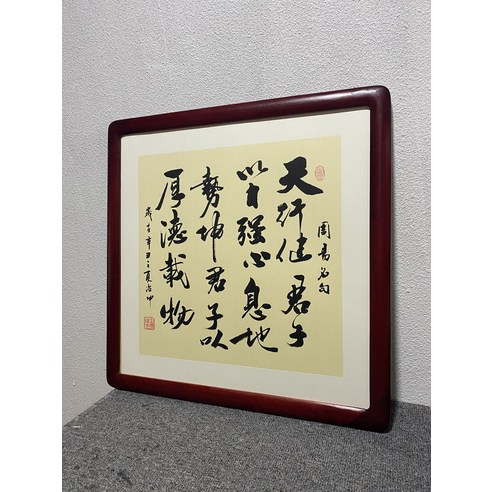 周易名句
天行健君子
以自强不息地
勢坤君子以
厚德載物
歲在辛丑之夏